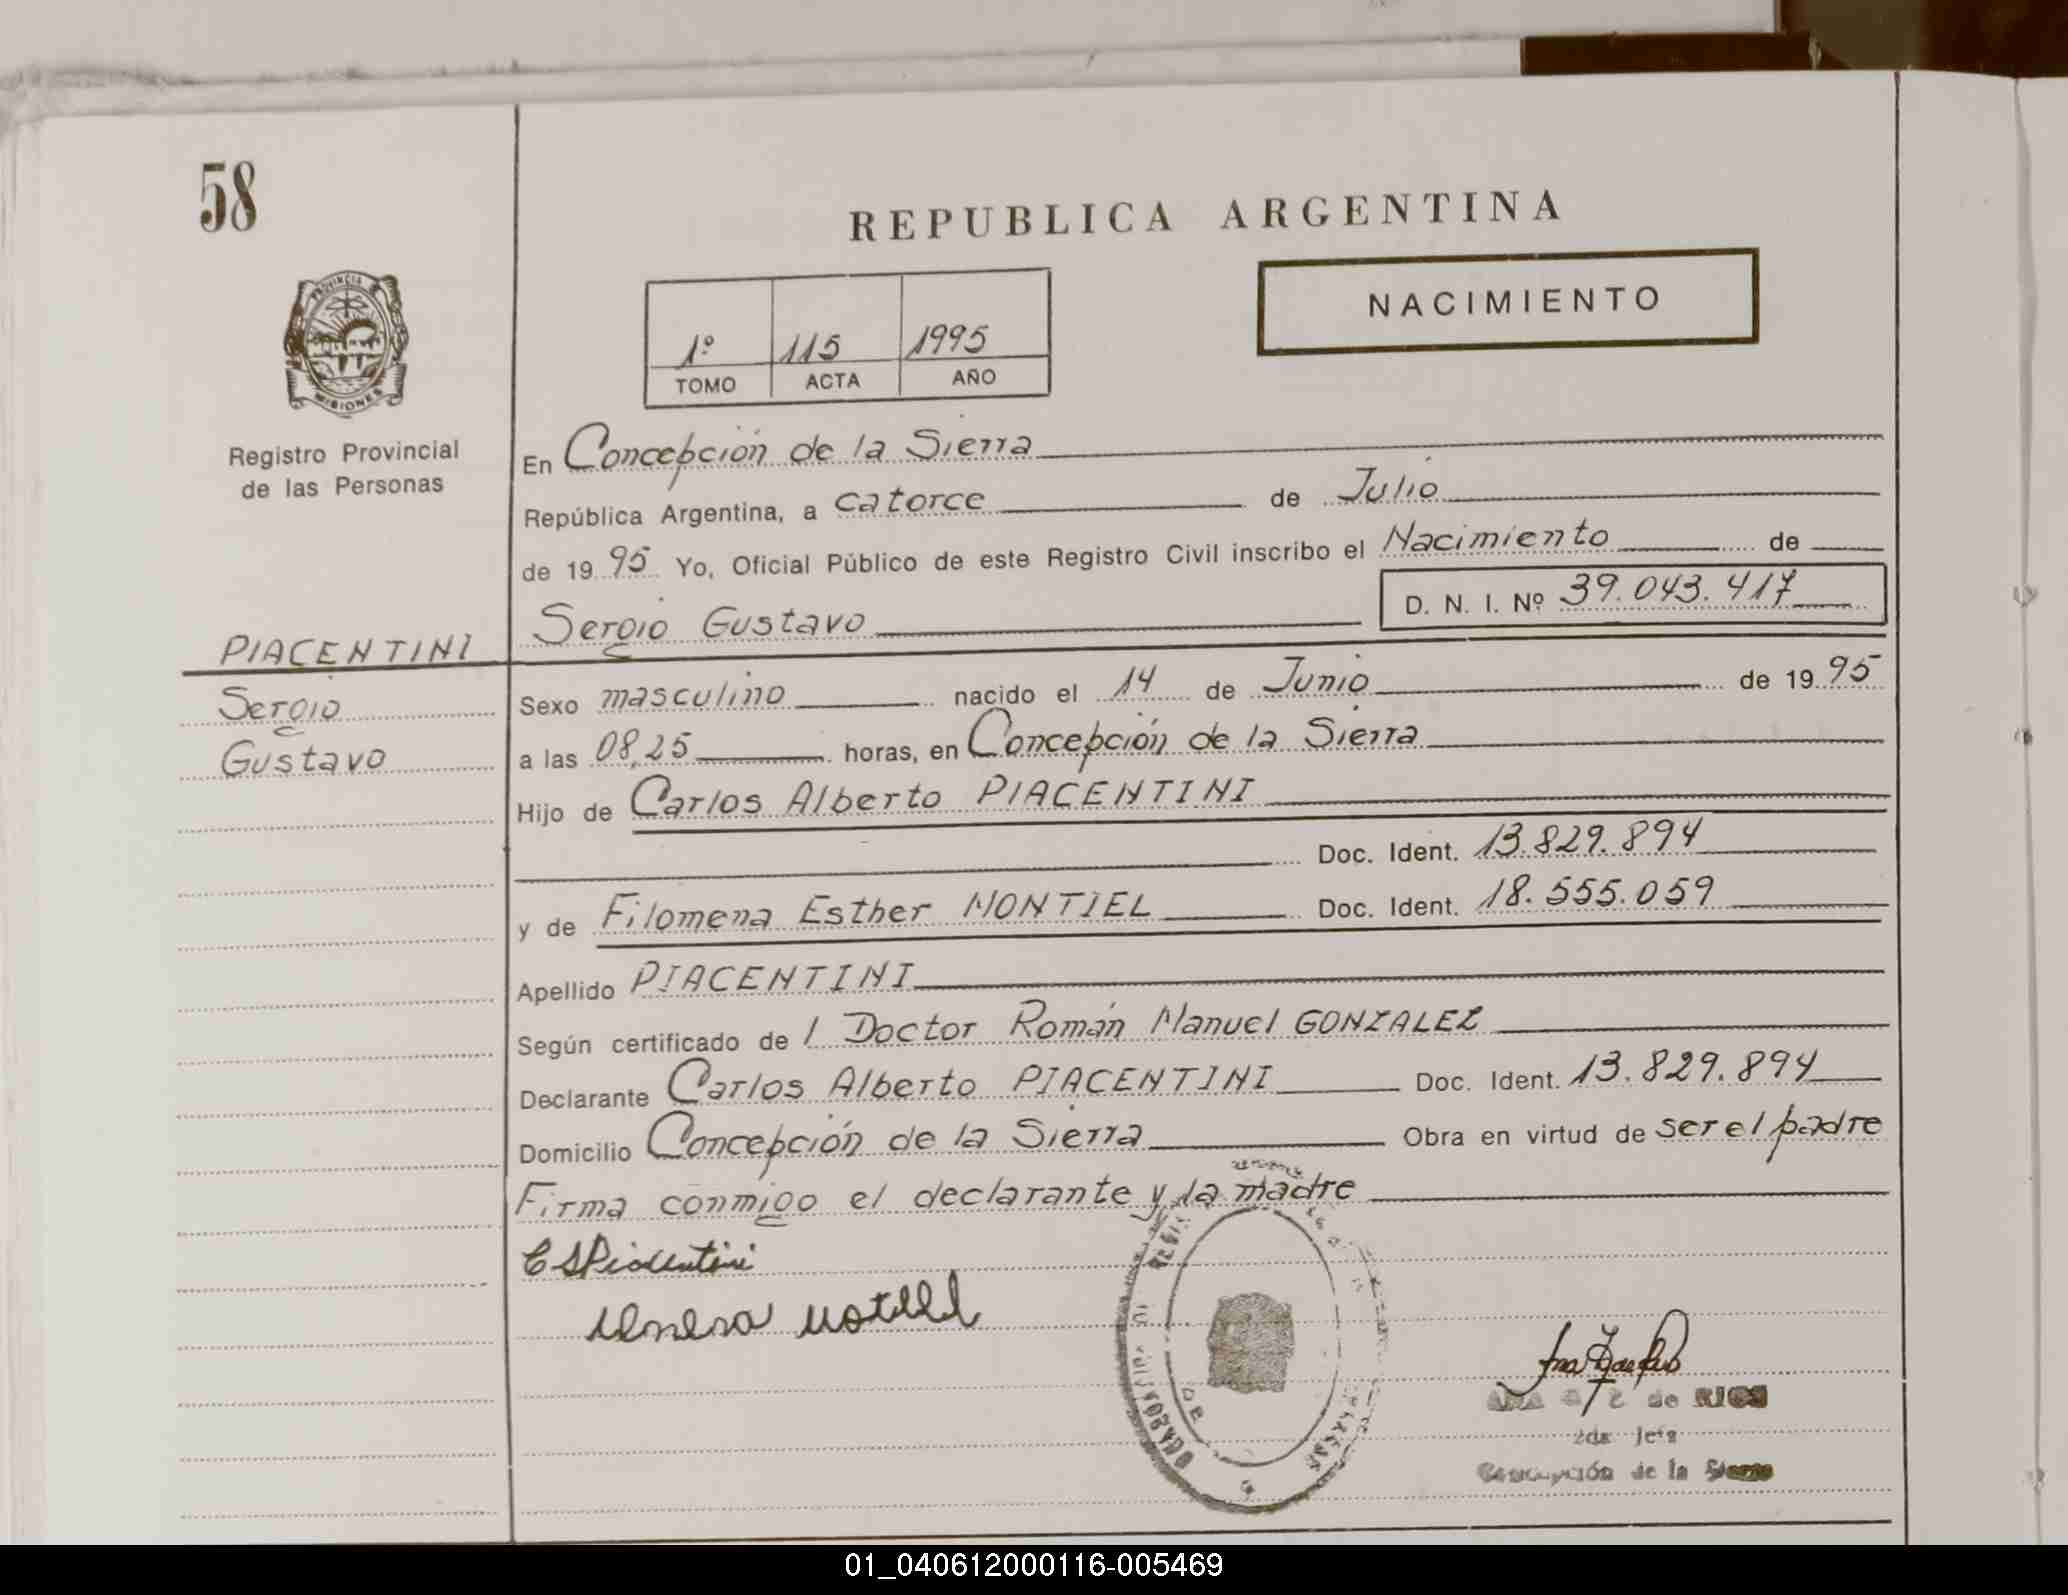 58
REPUBLICA ARGENTINA
NACIMIENTO
1º 115 1995
TOMO ACTA AÑO
PROVINCIA
MISIONES
Registro Provincial
de las Personas
En Concepción de la Sierra
República Argentina, a catorce de Julio
de 1995 Yo, Oficial Público de este Registro Civil inscribo el Nacimiento de
D. N. I. Nº 39.043.417
Sergio Gustavo
PIACENTINI
Sergio
Gustavo
Sexo masculino nacido el 14 de Junio de 1995
a las 08,25 horas, en Concepción de la Sierra
Hijo de Carlos Alberto PIACENTINI
Doc. Ident. 13.829.894
y de Filomena Esther MONTIEL Doc. Ident. 18.555.059
Apellido PIACENTINI
Según certificado de l Doctor Román Manuel GONZALEZ
Declarante Carlos Alberto PIACENTINI Doc. Ident. 13.829.894
Domicilio Concepción de la Sierra Obra en virtud de ser el padre
Firma conmigo el declarante y la madre
ANA de RIOS
2da Jefa
Concepción de la Sierra
01_040612000116-005469